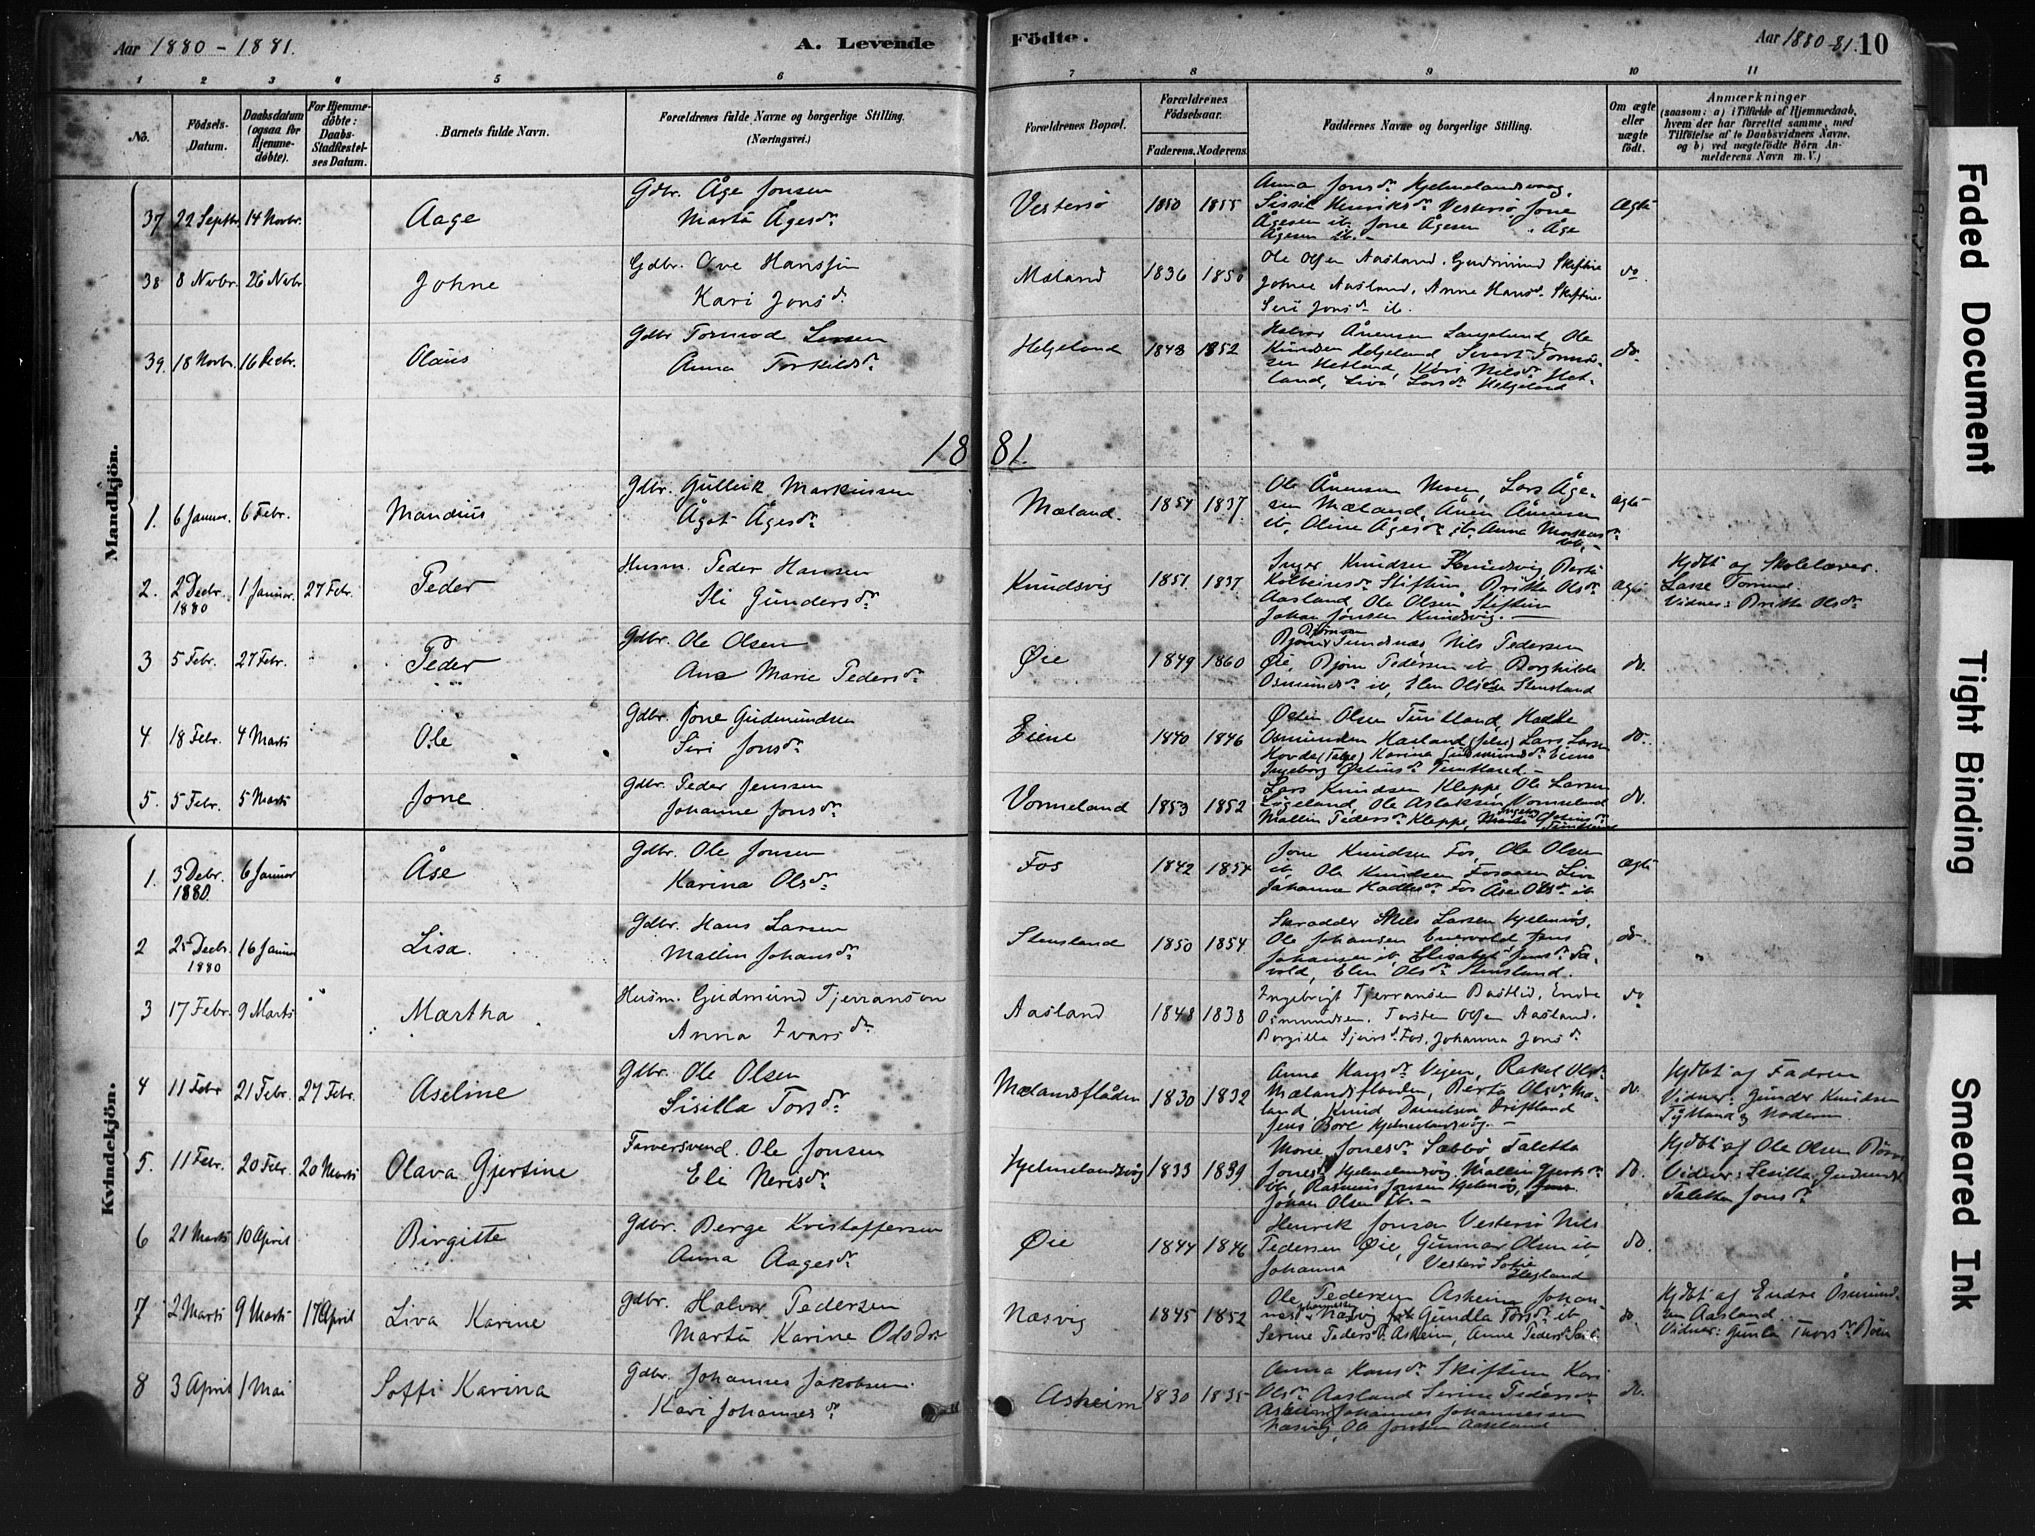 Aar 1880 - 1881.
A. Levende
Födte.
Aar 1880-81. 10
1 2 3 4 5 6 7 8 9 10 11
No.
Födsels-Datum.
Daabsdatum (ogsaa for Hjemme-døbte).
For Hjemme-døbte: Daabs-Stadfæstel-ses Datum.
Barnets fulde Navn.
Forældrenes fulde Navne og borgerlige Stilling. (Næringsvei.)
Forældrenes Bopæl.
Forældrenes Födselsaar.
Faderens. Moderens.
Faddernes Navne og borgerlige Stilling.
Om ægte eller uægte födt.
Anmærkninger (saasom: a) i Tilfælde af Hjemmedaab, hvem der har forrettet samme, med Tilföielse af to Daabsvidners Navne. og b) ved uægtefödte Börn An-melderens Navn m. V.)
Mandkjön.
37 22 Septbr. 14 Novbr. Aage Gdbr. Åge Jonsen Marta Ågesdr. Vestersö 1850 1855 Anna Jonsdr. Hjelmelandsvaag, Sissil Henriksdr. Vestersö, Jone Ågesen ib. Jone Ågesen Åge Ågesen ib. Ægte
38 8 Novbr. 26 Novbr Johne Gdbr. Ove Hanssen Kari Jonsdr. Mæland 1836 1850 Ole Olsen Aasland, Gudmund Skiftun Johne Aasland, Anne Hansdr. Skiftun Seri Jonsdr. ib. do
39. 18 Novbr. 16 Decbr. Olaus Gdbr Tormod Larsen Anna Torkildsdr. Helgeland 1848 1852 Halvor Ånensen Langelund, Ole Knudsen Helgeland, Sivert Tormod-sen Hetland, Kari Nilsdr. Het-land, Liva Larsdr. Helgeland do.
1881.
1. 6 Januar. 6 Febr. Mandius Gdbr. Gulleik Markussen Ågot Ågesdr. Mæland. 1854 1837 Ole Ånensen Moen, Lars Åge-sen Mæland, Ånen Ånensen ib. Oline Ågesdr. ib. Anna Markusdr ib. ægte
2. 2 Decbr. 1880 1 Januar. 27 Febr. Peder Husm. Peder Hansen Eli Gundersdr. Knudsvig 1851 1837 Inger Knudsen Knudsvig Berta Kolbeinsdr. Skiftun, Britta Olsdr. Aasland, Ole Olsen Skiftun Johan Jonsen Knudsvig. ægte Hjdbt af Skolelærer Lasse Vidner: Britta Olsdr.
3 5 Febr. 27 Febr. Peder Gdbr. Ole Olsen Ane Marie Pedersdr. Øie 1849 1860 Nils Pedersen Øie, Bjørn Pedersen ib Borghilda Osmundsdr. ib, Elen Olsdr Stensland do.
4 18 Febr. 4 Marts Ole Gdbr. Jone Gudmundsen Siri Jonsdr. Eiene 1840 1846 Østen Olsen Tuntland Hadle Osmundsen Hæland (Jelse) Lars Larsen Hovda (Talge) Karina Gudmundsdr. Eiene Ingeborg Østensdr. Tuntland. do.
5. 5 Febr. 5 Marts Jone Gdbr. Peder Jenssen Johanne Jonsdr. Vormeland 1853 1852 Lars Knudsen Kleppe, Ole Larsen Ole Aslaksen Vormeland Mallin Pedersdr. Kleppe, do.
Kvindekjön.
1. 3 Decbr. 1880. 6 Januar Åse Gdbr. Ole Jonsen Karina Olsdr. Fos 1842 1854 Jone Knudsen Fos, Ole Olsen ib. Ole Knudsen Fosaaen Liva Johanna Hadlesdr. Fos Åsa Olsdr. ib. ægte
2 25 Decbr. 1880 16 Januar Lisa. Gdbr. Hans Larsen Mallin Johansdr. Stensland 1850 1854 Skrædder Nils Larsen Hjelmvåg, Ole Johansen Jens Johansen ib. Elisabet Jensdr. Elen Olsdr. Stensland. do.
3 17 Febr. 9 Marts Martha Husm. Gudmund Tjerranson Anna Ivarsdr. Aasland 1848 1838 Ingebrigt Tjerransen Bastlid, Endre Osmundsen, Torsten Olsen Aasland. Borgilla Sjursdr. Fos, Johanna Jonsdr. do
4 11 Febr 21 Febr. 27 Febr. Aseline Gdbr. Ole Olsen Sisilla Torsdr. Mælandsflåden 1830 1832 Anna Hansdr. Vigen, Rakel Olsdr. Mælandsflaaden, Berta Olsdr. Mæ-land, Knud Danielsen Driftland Jens Bore Hjelmelandsvåg. do. Hjdbt af Fadren Vidner: Gunder Knudsen Tytland & Moderen
5. 11 Febr. 20 Febr. 20 Marts Olava Gjertine Farversvend. Ole Jonsen Eli Nerisdr. Hjelmelandsvåg 1833 1839 Marie Jonesdr. Sæbbø, Taletta Jonesdr. Hjelmelandsvåg Mallin Gjertsdr. ib, Rasmus Jonsen Hjelmvåg, Johan Olsen ib. do. Hjdbt af Ole Olsen Vidner: Sesilla Gudmundsdr. Taletta Jonsdr
6 21 Marts 10 April Birgitte Gdbr. Berge Kristoffersen Anna Aagesdr. Øie 1844 1846 Henrik Jonsen Vestersö Nils Pedersen Øie, Gunnar Olsen ib Johanna Vestersö Sofie Hegland do.
7 2 Marts 9 Marts 17 April Liva Karine Gdbr. Halvor Pedersen Marta Karine Olsdr Næsvig 1845 1852 Ole Pedersen Asheim Johan-nes Johannessen Næsvig Gundla Torsdr. ib Serine Pedersdr. Asheim, Anne Pedersdr. do Hjdbt af Endre Osmund-sen Aasland Vidner: Gunla Thorsdr.
8 3 April 1 Mai Soffi Karina Gdbr. Johannes Jakobsen Kari Johannesdr. Asheim 1830 1835 Anna Hansdr. Skiftun Kari Olsdr. Aasland Serine Pedersdr Asheim Johannes Johannessen Næsvig, Ole Jonsen Aasland do.
Faded Document
Tight Binding
Smeared Ink